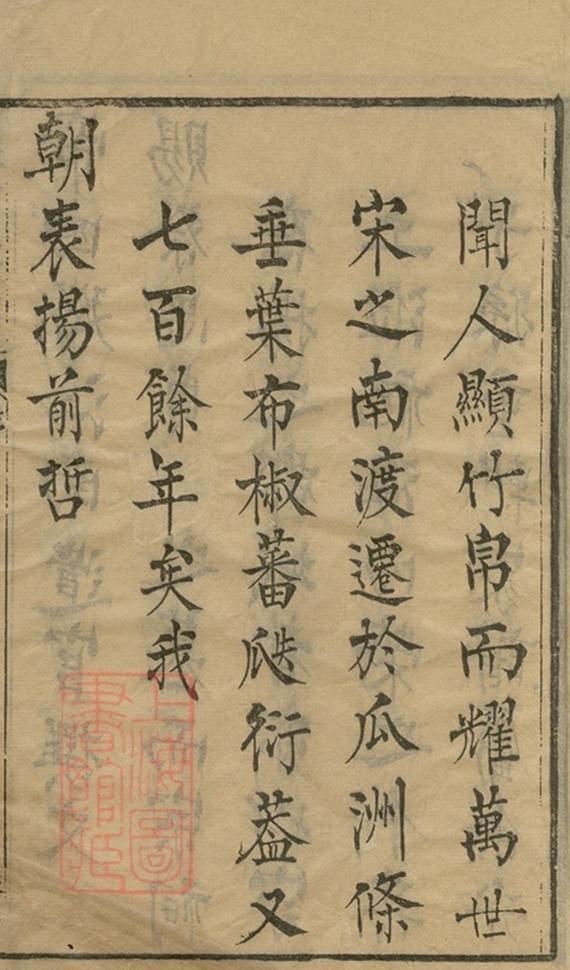 聞人顯竹帛而耀萬世
宋之南渡遷於瓜洲條
垂葉布椒蕃瓞衍葢又
七百餘年矣我
朝表揚前哲
上海圖
書館藏